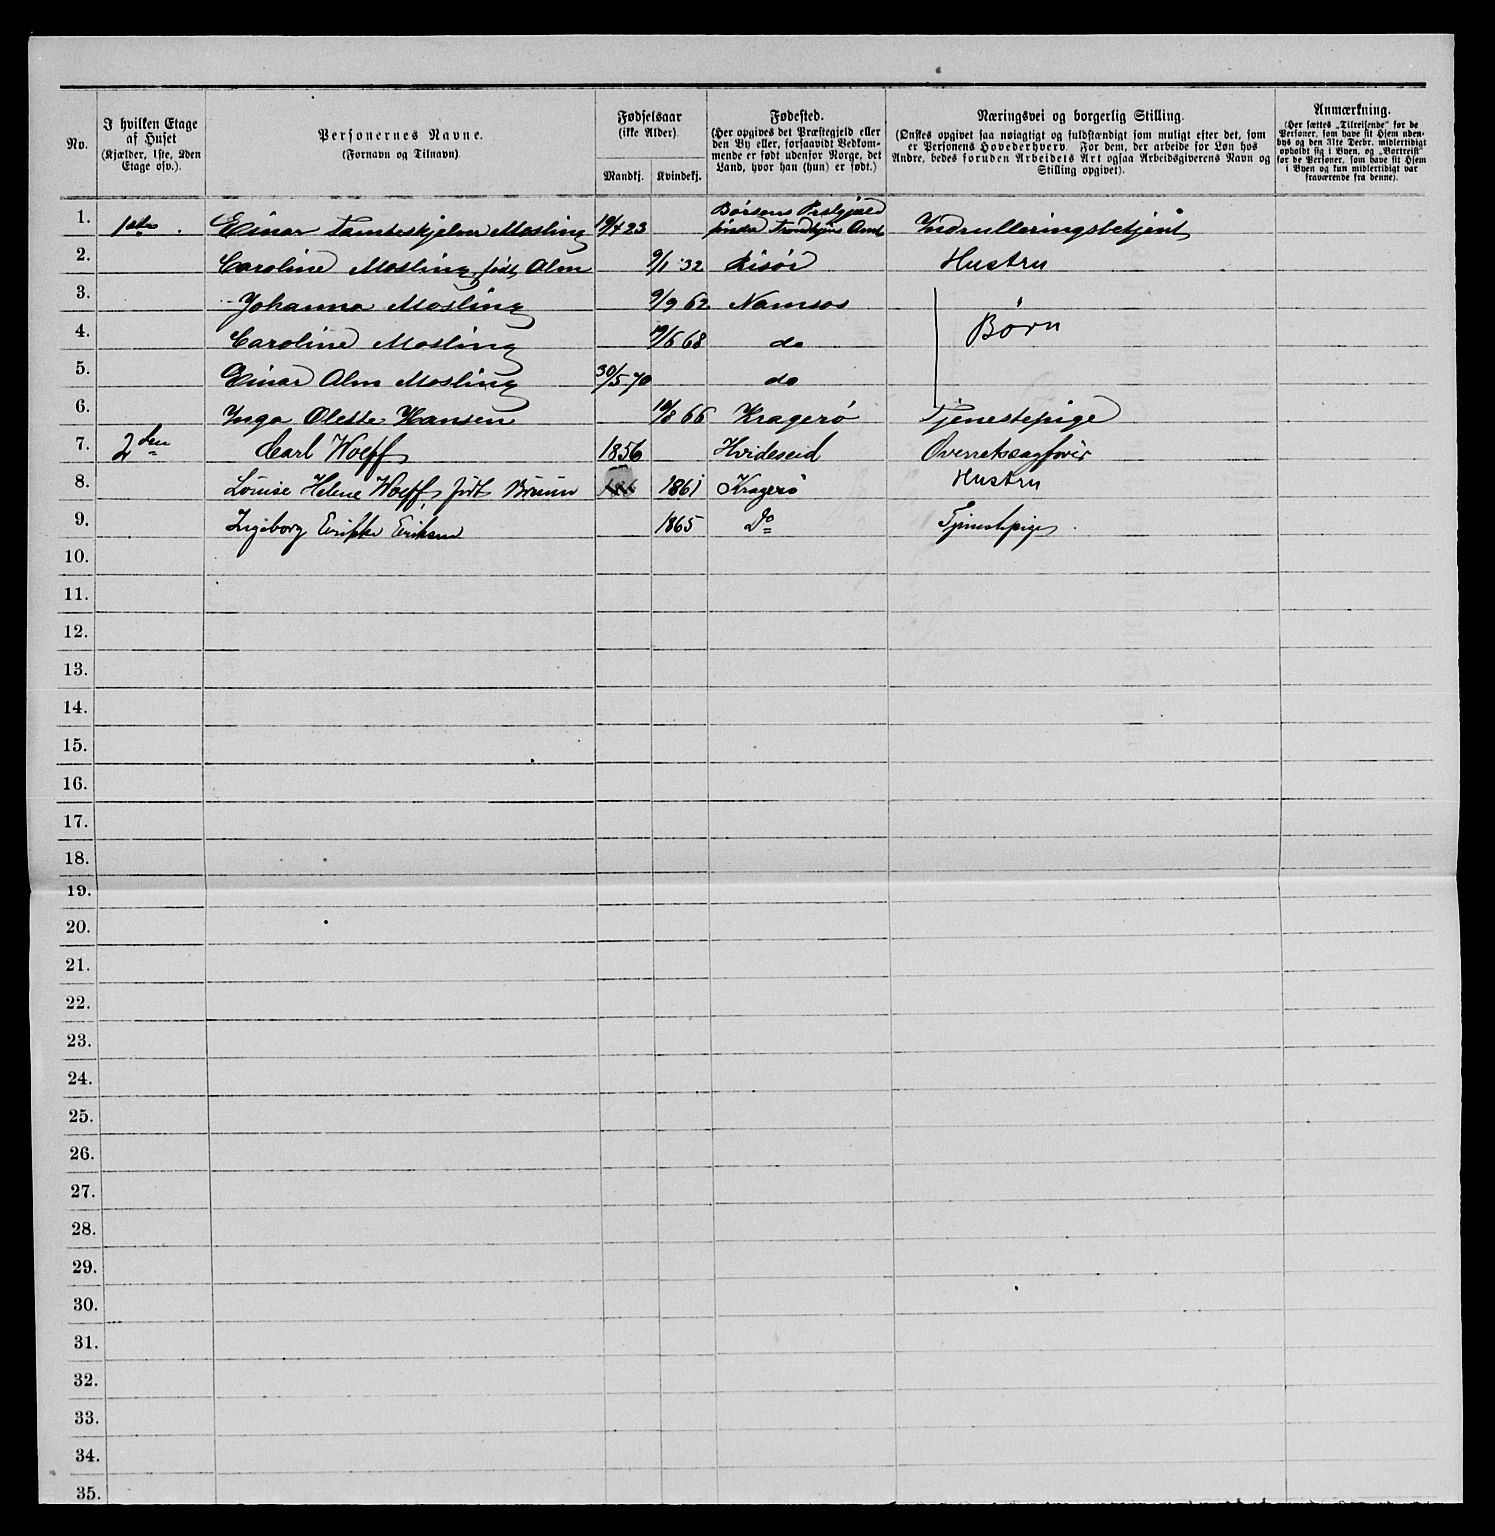 No. I hvilken Etage af Huset (Kjælder, 1ste, 2den Etage osv.). Personernes Navne. (Fornavn og Tilnavn) Fødselsaar (ikke Alder) Mandkj. Kvindekj. Fødested. (Her opgives det Præstegjeld eller den By eller, forsaavidt Vedkommende er født udenfor Norge, det Land, hvor han (hun) er født.) Næringsvei og borgerlig Stilling. (Ønskes opgivet saa nøiagtigt og fuldstændigt som muligt efter det, som er Personens Hovederhverv. For dem, der arbeide for Løn hos Andre, bedes foruden Arbeidets Art ogsaa Arbeidsgiverens Navn og Stilling opgivet). Anmærkning. (Her sættes „Tilreisende“ for de Personer, som have sit Hjem udenbys og den 31te Decbr. midlertidigt opholdt sig i Byen, og „Bortreist“ for de Personer, som have sit Hjem i Byen og kun midlertidigt var fraværende fra denne).
1. 1ste Einar Tambeskjelver Mosling 19/4 23 Børsens Prstgjæld søndre Trondhjems Amt Indrulleringsbetjent
2. Caroline Mosling født Alm 9/1 32 Risør Hustru
3. Johanna Mosling 9/9 62 Namsos
4. Caroline Mosling 68 do Børn
5. Einar Alm Mosling 30/5 70 do
6. Inga Olette Hansen 19/8 66 Kragerø Tjenestepige
7. 2den Carl Wolff 1856 Hvideseid Overretssagfører
8. Louise Helene Wolff, født Bruun 1861 Kragerø Hustru
9. Ingeborg Erikke Eriksen 1865 Do Tjenestepige
10.
11.
12.
13.
14.
15.
16.
17.
18.
19.
20.
21.
22.
23.
24.
25.
26.
27.
28.
29.
30.
31.
32.
33.
34.
35.